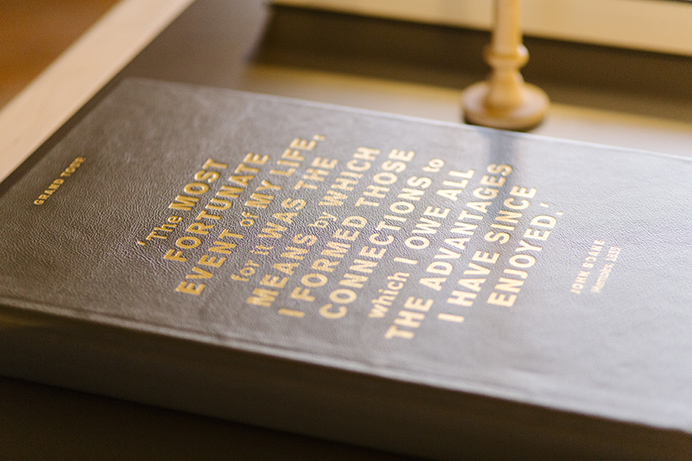 GRAND TOUR
'The MOST
FORTUNATE
EVENT of MY LIFE,
for it WAS THE
MEANS by WHICH
I FORMED THOSE
CONNECTIONS to
which I OWE ALL
THE ADVANTAGES
I HAVE SINCE
ENJOYED.'
JOHN SOANE
Memoirs, 1835